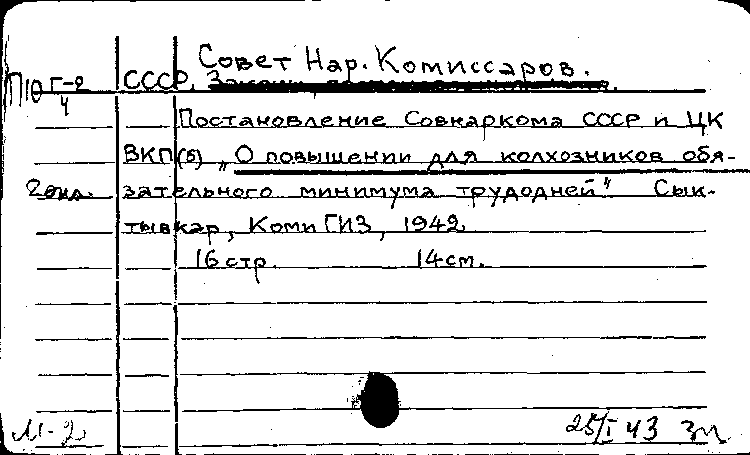 Совет Нар. Комиссаров.
П10 Г-2/4 СССР.
Постановление Совнаркома СССР и ЦК
ВКП(б) „О повышении для колхозников обя-
2 экз. зательного минимума трудодней" Сык-
тывкар, Коми ГИЗ, 1942
16 стр. 14 см.
М-2 25/I 43